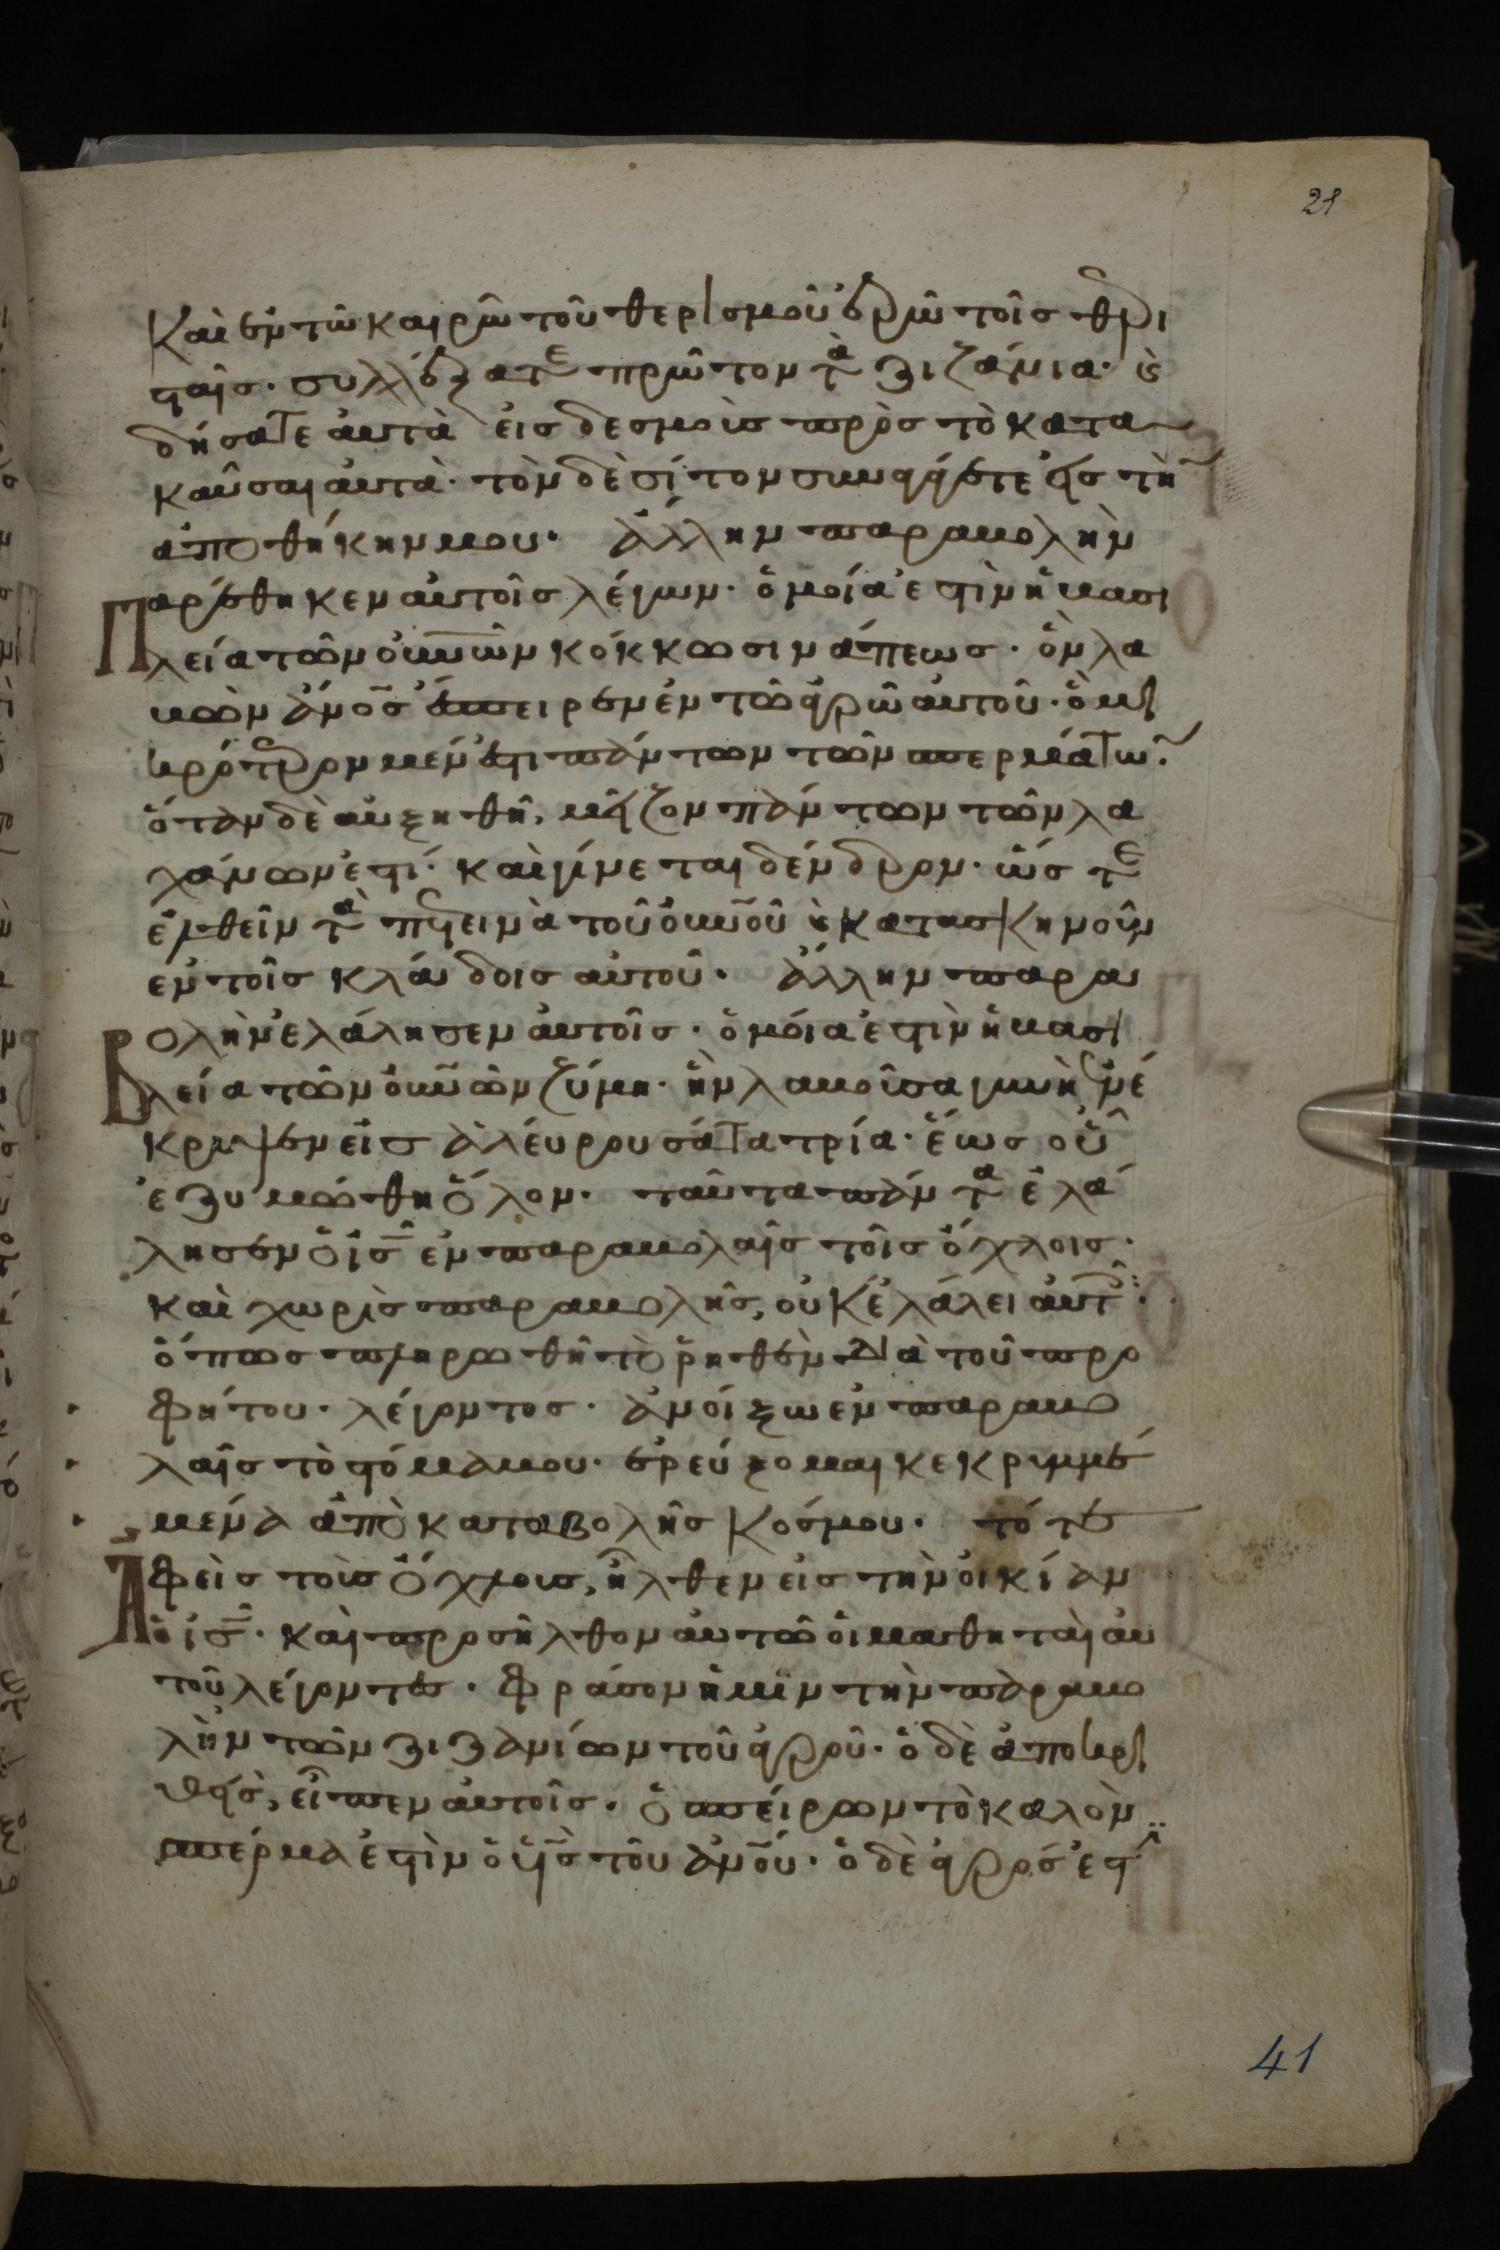 21
καὶ ἐν τῶ καιρῶ τοῦ θερισμοῦ ἐρῶ τοῖς θερι
σταῖς· συλλέξατε πρῶτον τὰ ζιζάνια· καὶ
δήσατε αὐτὰ εἰς δεσμοὺς πρὸς τὸ κατα
καῦσαι αὐτὰ· τὸν δὲ σίτον συναγάγετε εἰς τὴν
ἀποθήκην μου· ἄλλην παραβολὴν
Παρέθηκεν αὐτοῖς λέγων· ὁμοία ἐστὶν ἡ βασι
λεία τῶν οὐνῶν κόκκω σινάπεως· ὃν λα
βὼν ἄνος ἔσπειρεν ἐν τῶ ἀγρῶ αὐτοῦ· ὃ μι
κρότερον μέν ἐστι πάντων τῶν σπερμάτων·
ὅταν δὲ αὐξηθῆ, μεῖζον πάντων τῶν λα
χάνων ἐστί· καὶ γίνεται δένδρον· ὥστε
ἐλθεῖν τὰ πετεινὰ τοῦ οὐνοῦ καὶ κατασκηνοῦν
ἐν τοῖς κλάδοις αὐτοῦ· ἄλλην παρα
Βολὴν ἐλάλησεν αὐτοῖς· ὁμοία ἐστὶν ἡ βασι
λεία τῶν οὐνῶν ζύμη· ἣν λαβοῦσα γυνὴ ἐνέ
κρυψεν εἰς ἀλεύρου σάτα τρία· ἕως οὗ
ἐζυμώθη ὅλον· ταῦτα πάντα ἐλά
λησεν ὁ ις ἐν παραβολαῖς τοῖς ὄχλοις·
καὶ χωρὶς παραβολῆς, οὐκ ἐλάλει αὐτοῖς·
ὅπως πληρωθῆ τὸ ῥηθὲν διὰ τοῦ προ
φήτου· λέγοντος· ἀνοίξω ἐν παραβο
λαῖς τὸ στόμα μου· ἐρεύξομαι κεκρυμμέ
μένα ἀπὸ καταβολῆς κόσμου· τότε
Ἀφεὶς τοὺς ὄχλους, ἦλθεν εἰς τὴν οἰκίαν
ὁ ις· καὶ προσῆλθον αὐτῶ οἱ μαθηταὶ αὐ
τοῦ λέγοντες· φράσον ἡμῖν τὴν παραβο
λὴν τῶν ζιζανίων τοῦ ἀγροῦ· ὁ δὲ ἀποκρι
θεὶς, εἶπεν αὐτοῖς· ὁ σπείρων τὸ καλὸν
σπέρμα ἐστὶν ὁ υς τοῦ ἀνου· ὁ δὲ ἀγρός ἐστ
41